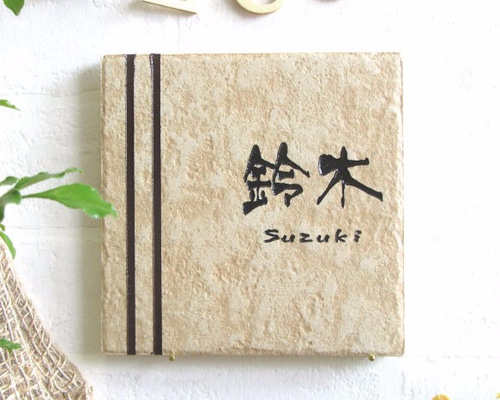 鈴木
Suzuki